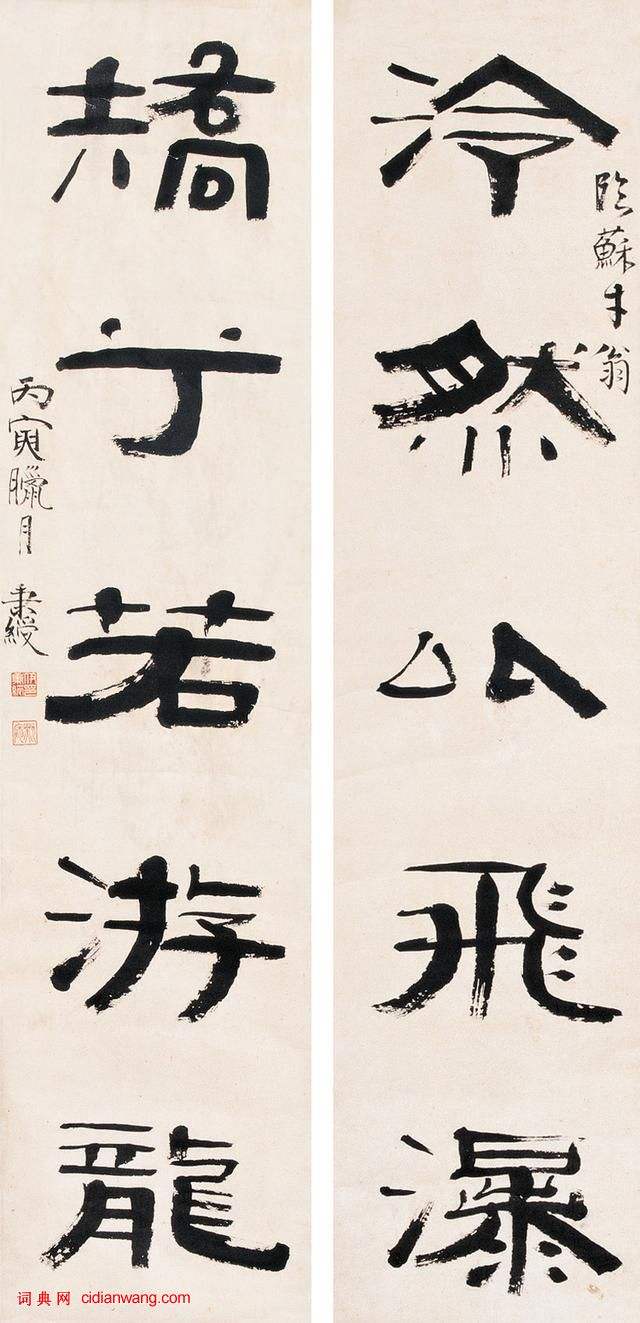 泠然以飛瀑
臨蘇才翁
矯兮若游龍
丙寅臘月 秉綬
词典网 cidianwang.com